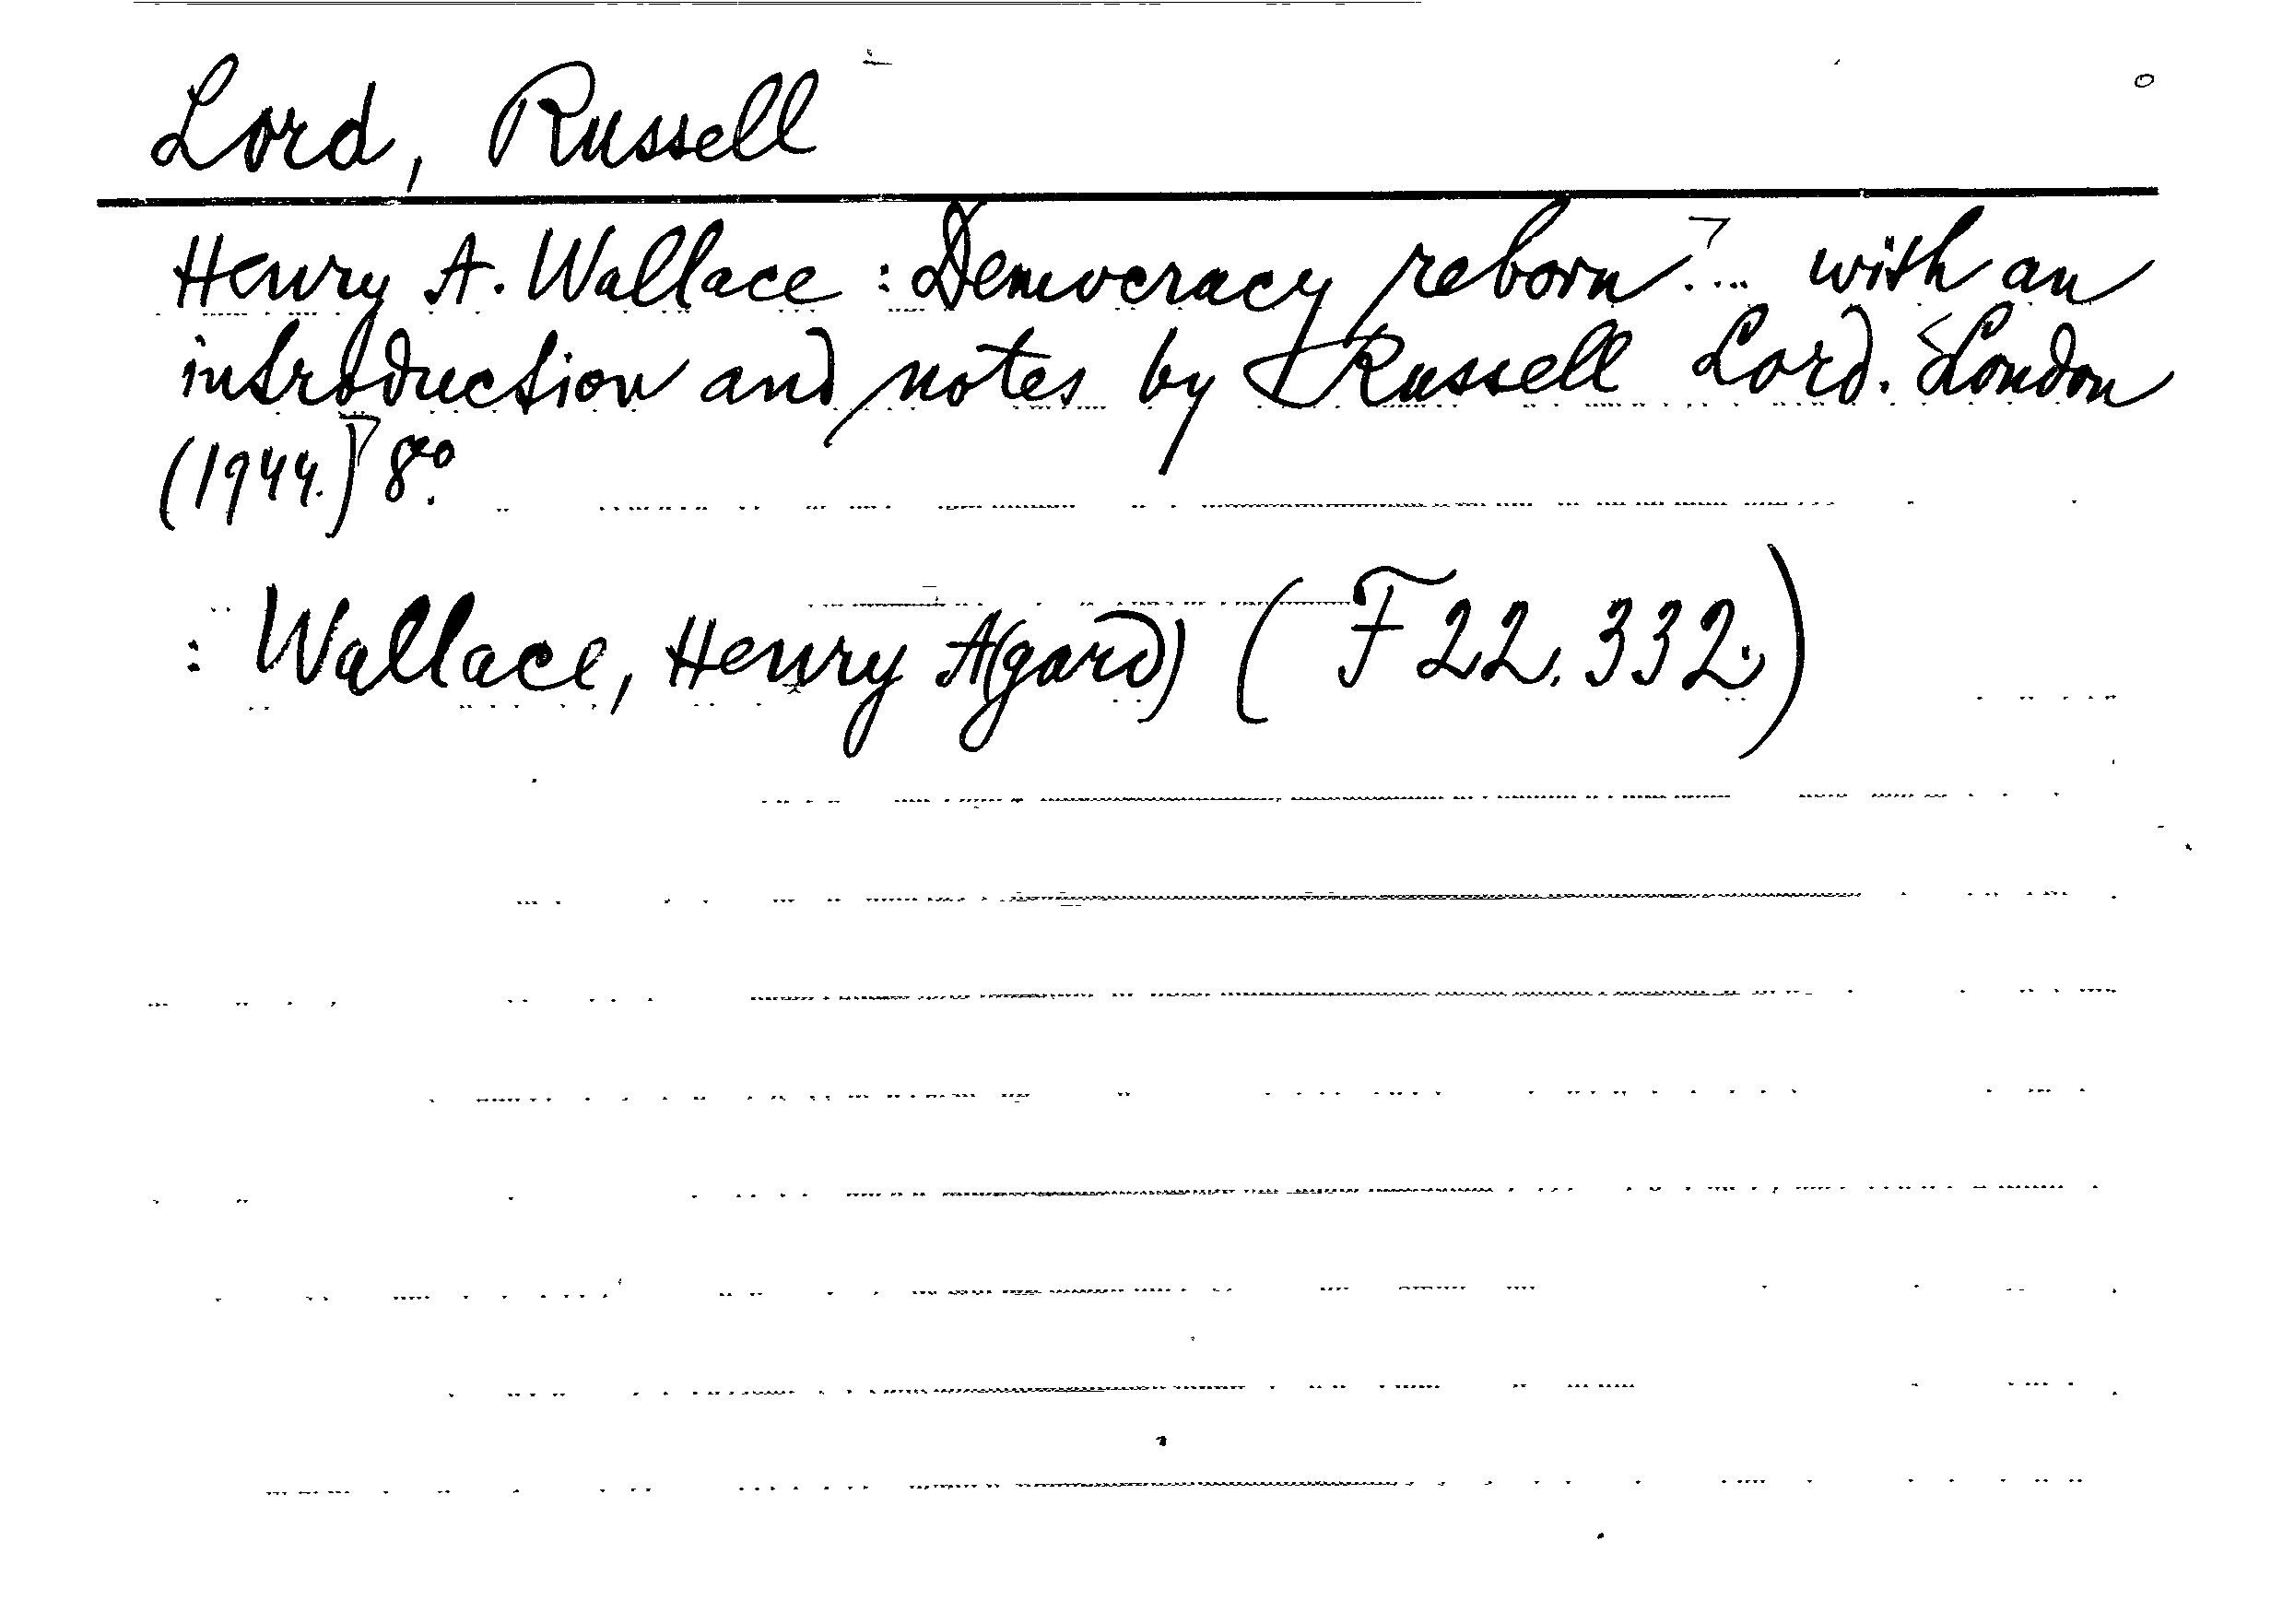 Lord, Russell
Henry A. Wallace : Democracy reborn. ... with an
introduction and notes by Russell Lord. London
(1944.) 8º.
: Wallace, Henry A(gard) (F 22.332.)